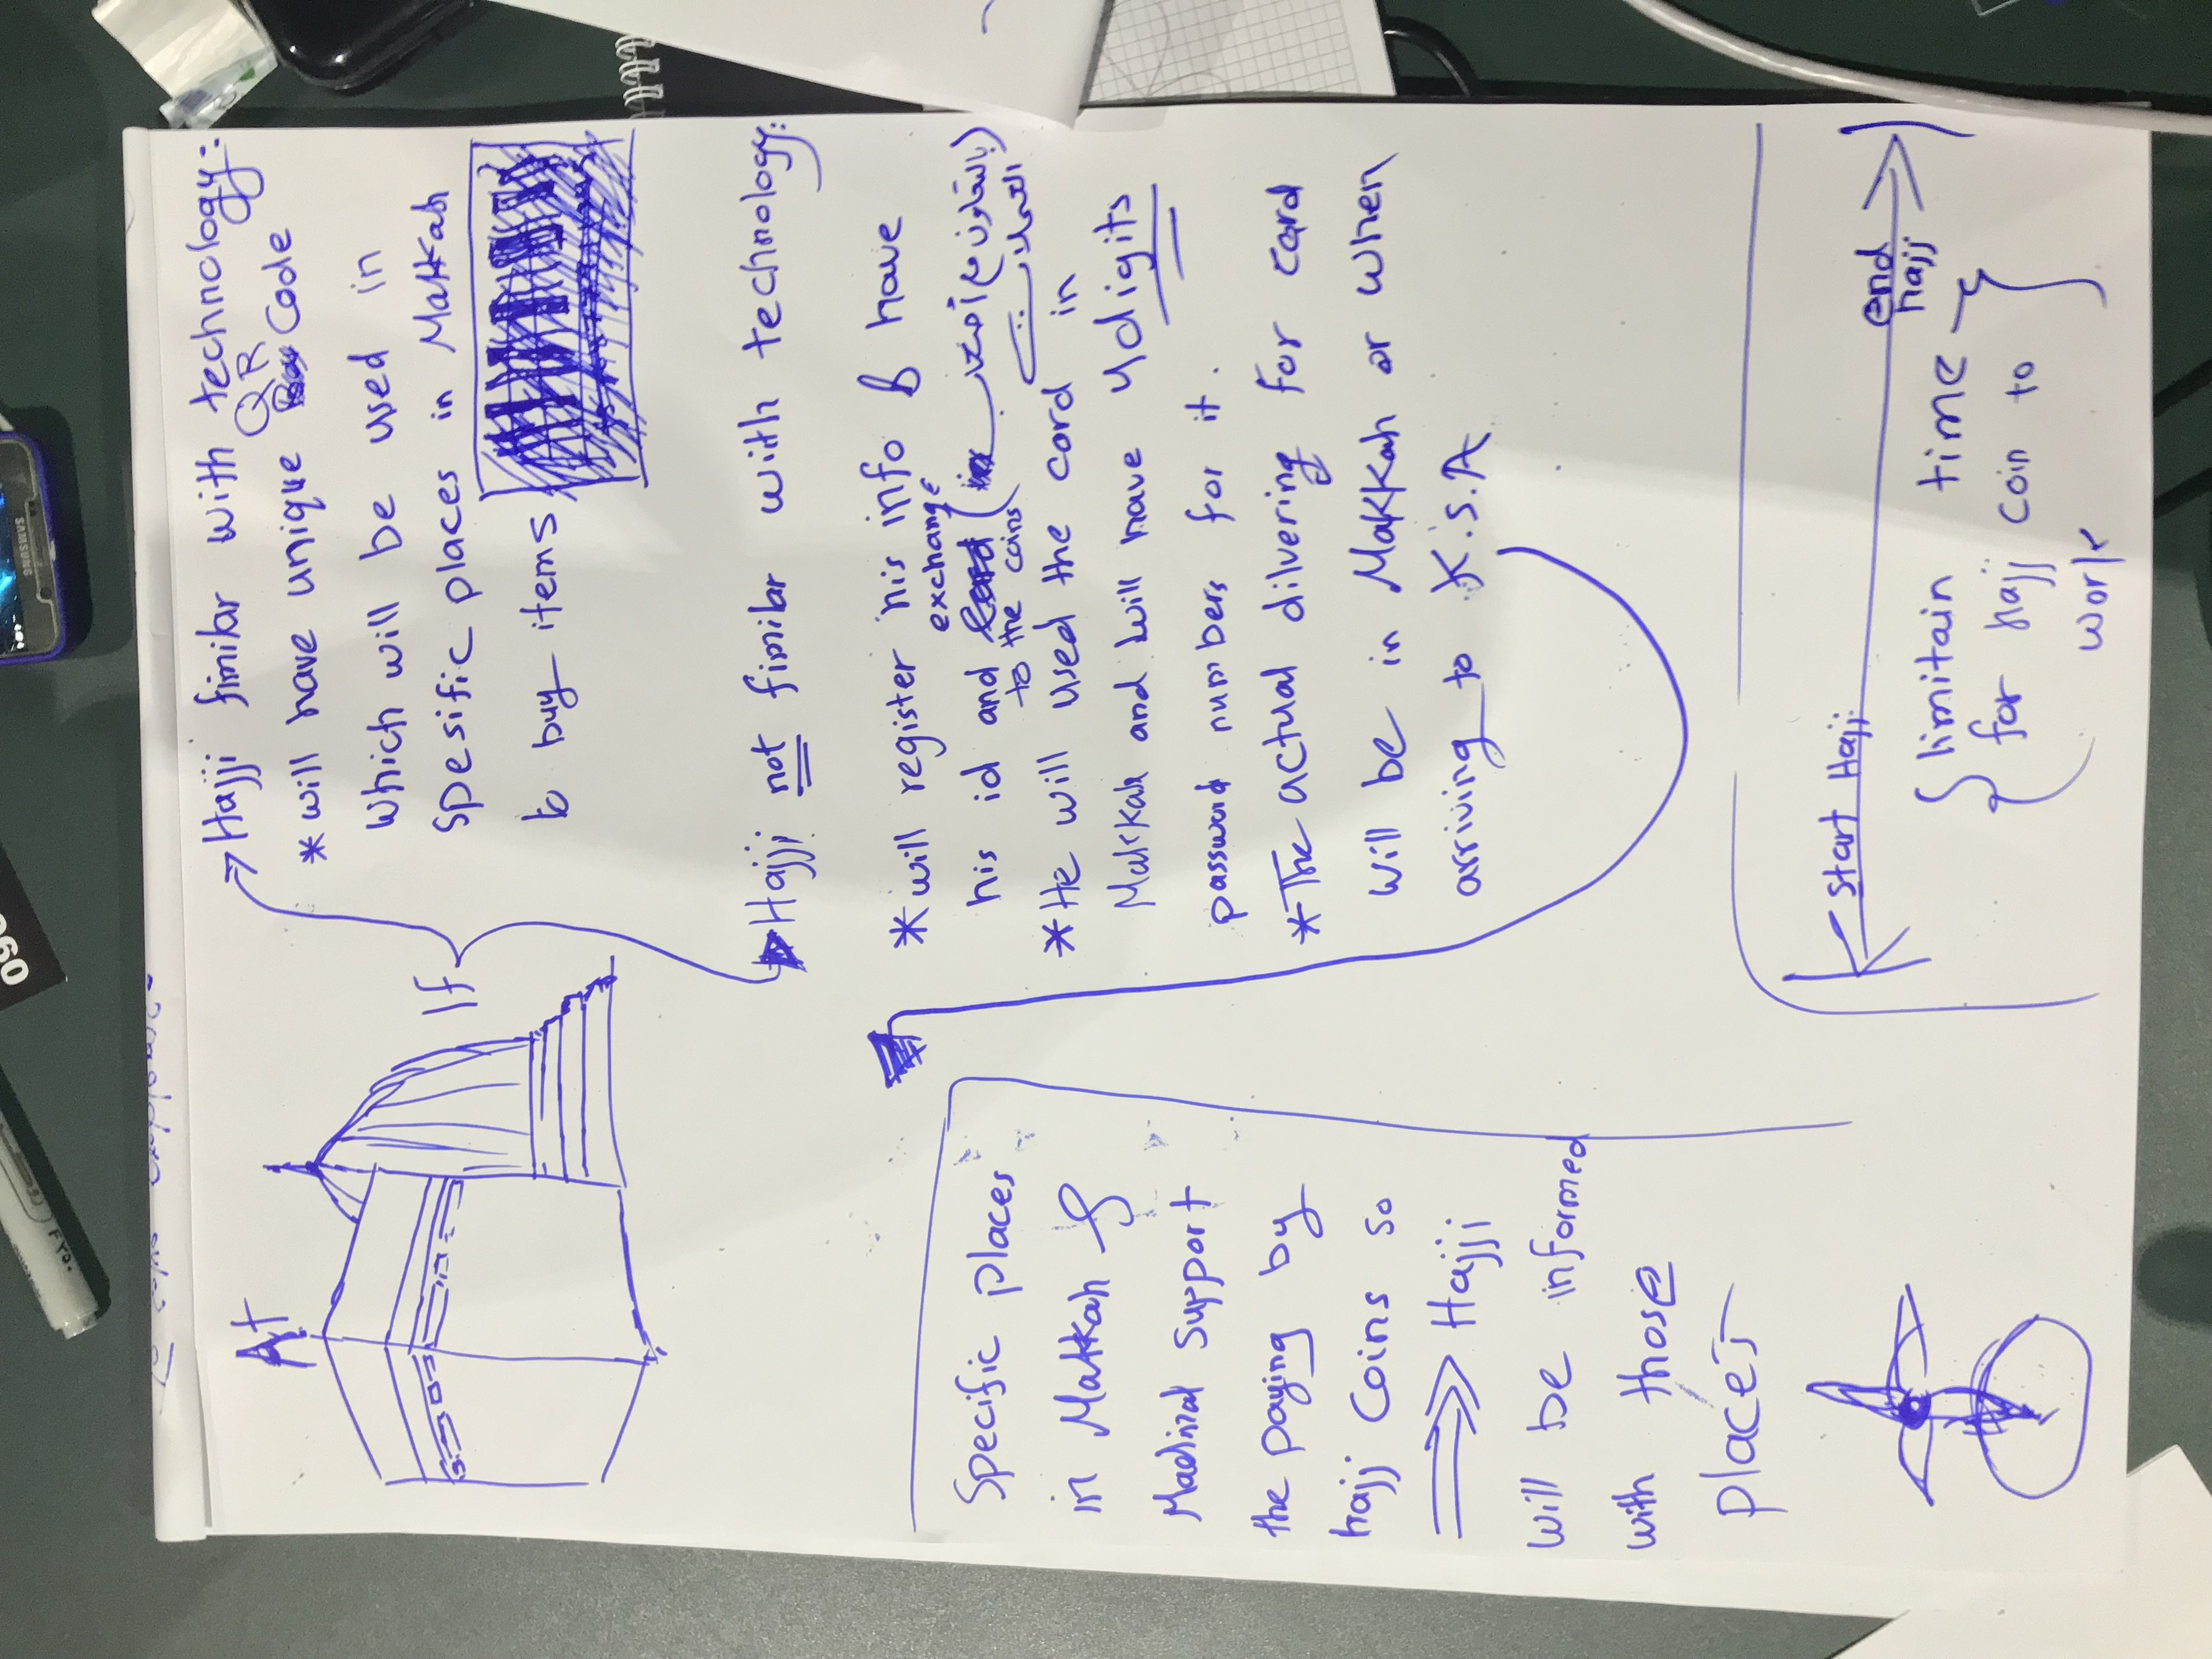 At
If
Hajji fimilar with technology:
* will have unique QR Code
which will be used in
spesific places in Makkah
to buy items
Hajji not fimilar with technology:
* will register his info & have
his id and exchange
to the coins
* He will used the card in
Makkah and will have 4 digits
password numbers for it.
* The actual dilvering for card
will be in Makkah or when
arriving to K.S.A
Specific places
in Makkah &
Madinah support
the paying by
hajj Coins so
Hajji
will be informed
with those
places
start Hajj
end hajj
limitain time
for hajj coin to
work
SAMSUNG